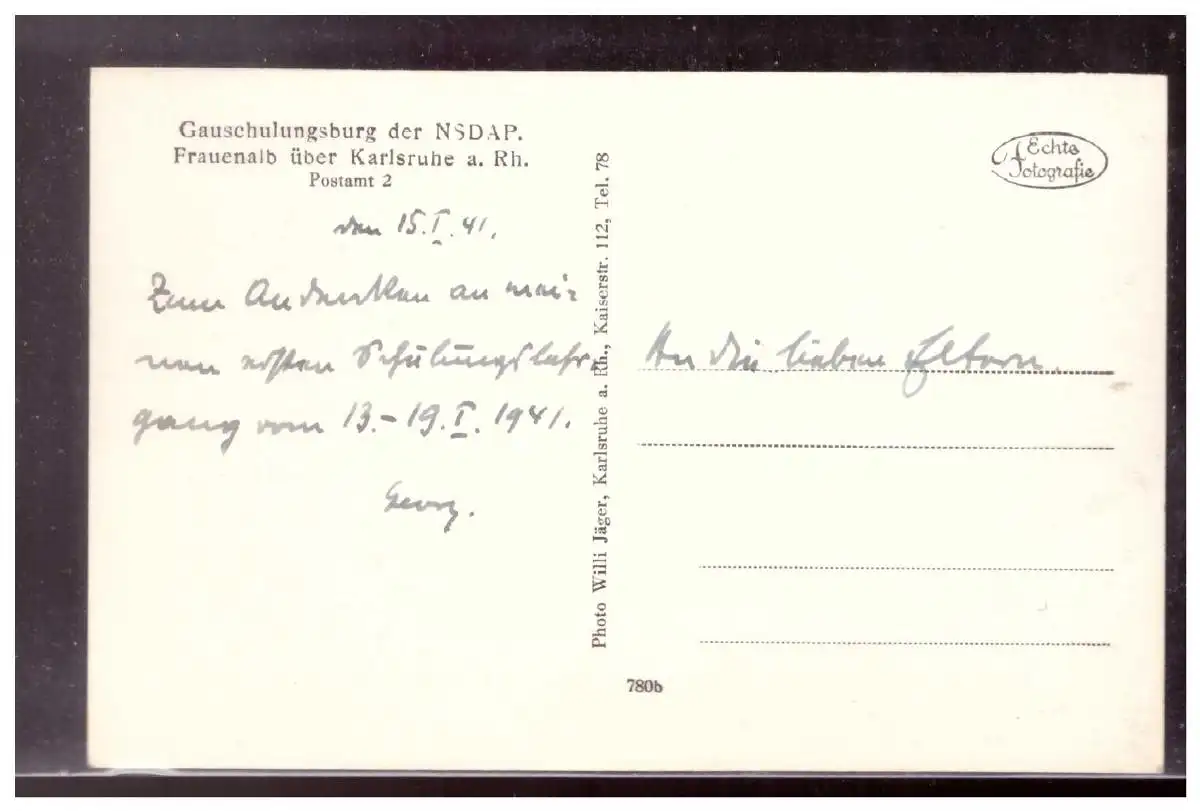 Gauschulungsburg der NSDAP.
Frauenalb über Karlsruhe a. Rh.
Postamt 2
den 15.I.41.
Zum Andenken an mei-
nen ersten Schulungslehr-
gang vom 13.-19.I.1941.
Georg.
Photo Willi Jäger, Karlsruhe a. Rh., Kaiserstr. 112, Tel. 78
Echte
Fotografie
An die lieben Eltern.
780b